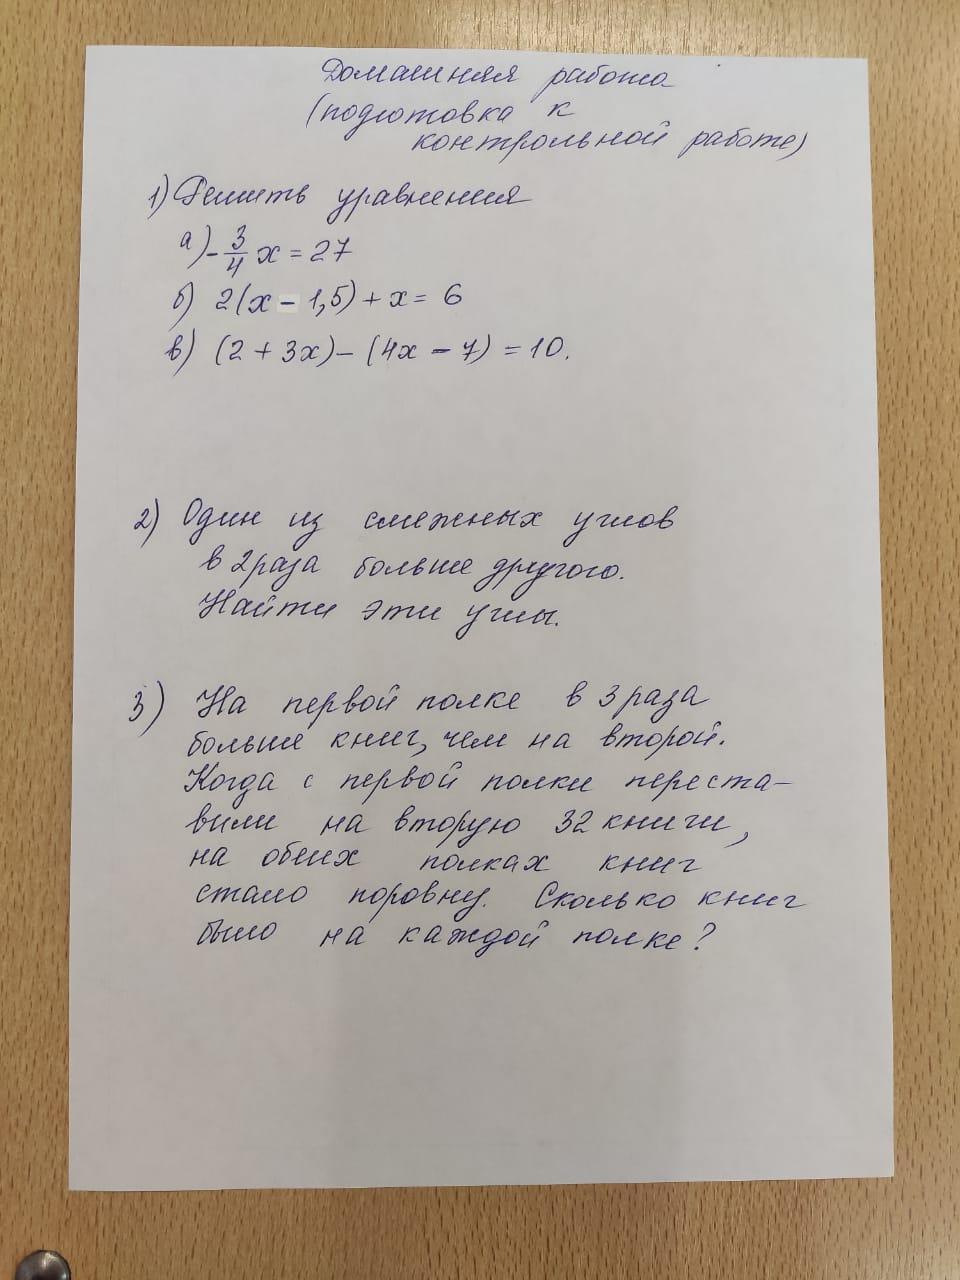 Домашняя работа
(подготовка к
контрольной работе)
1) Решить уравнения
а) -3/4 x = 27
б) 2(x - 1,5) + x = 6
в) (2 + 3x) - (4x - 7) = 10.
2) Один из смежных углов
в 2 раза больше другого.
Найти эти углы.
3) На первой полке в 3 раза
больше книг, чем на второй.
Когда с первой полки переста-
вили на вторую 32 книги,
на обеих полках книг
стало поровну. Сколько книг
было на каждой полке?